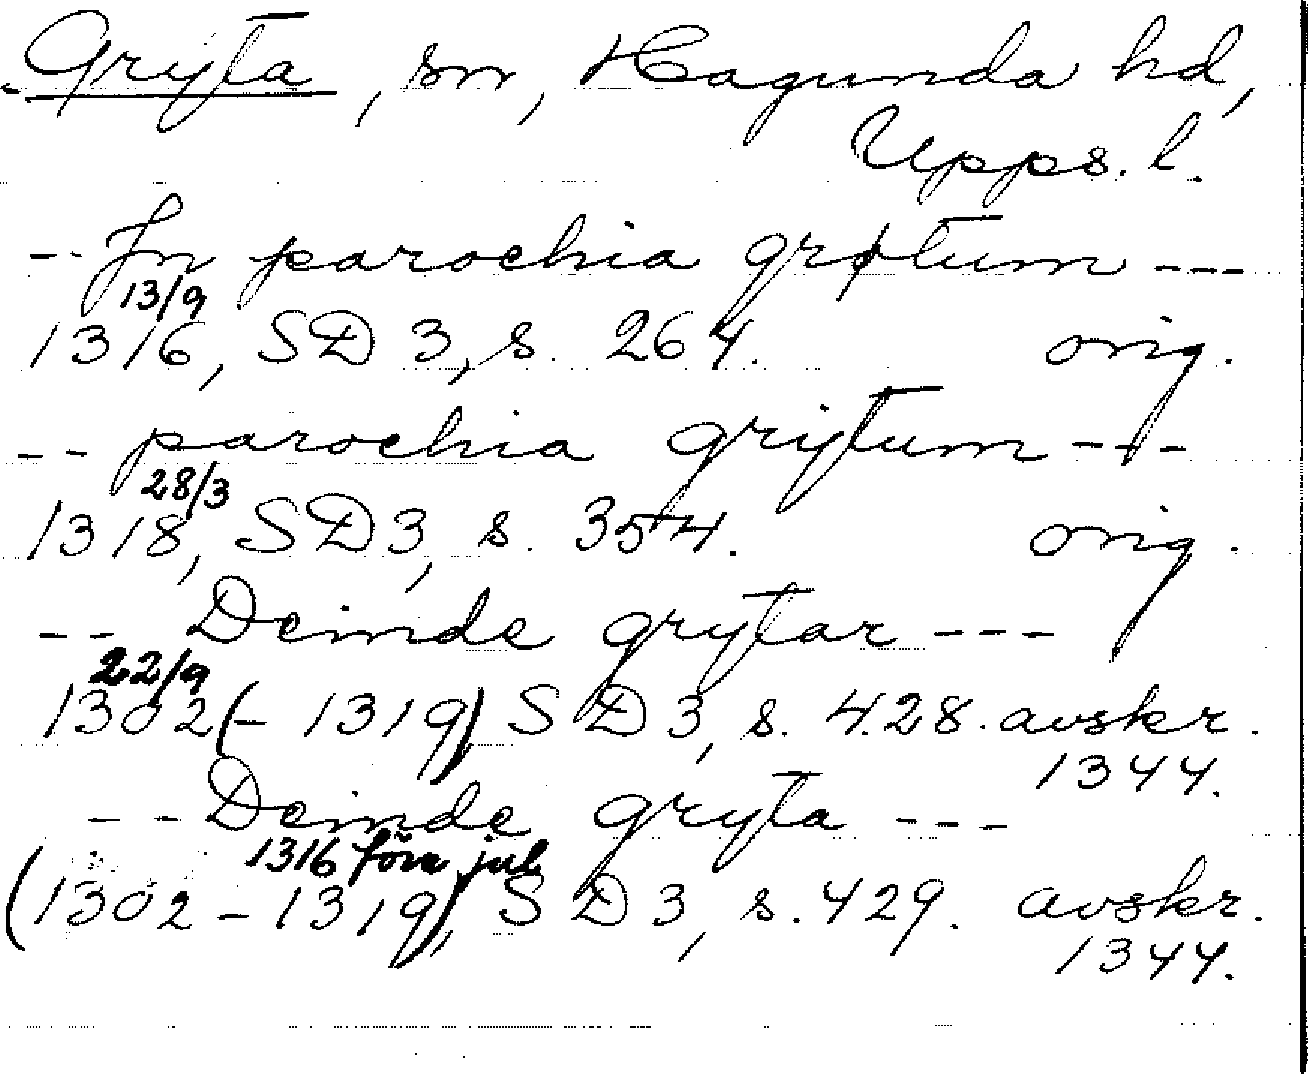 Gryta, sn, Hagunda hd,
Upps. l.
-- In parochia grøtum ---
13/9
1316, SD 3, s. 264. orig.
-- parochia gritum ---
28/3
1318, SD 3, s. 354. orig.
-- Deinde grytar ---
22/9
1302 (- 1319) SD 3, s. 428. avskr.
1344.
-- Deinde gryta ---
1316 före jul
(1302 - 1319), SD 3, s. 429. avskr.
1344.